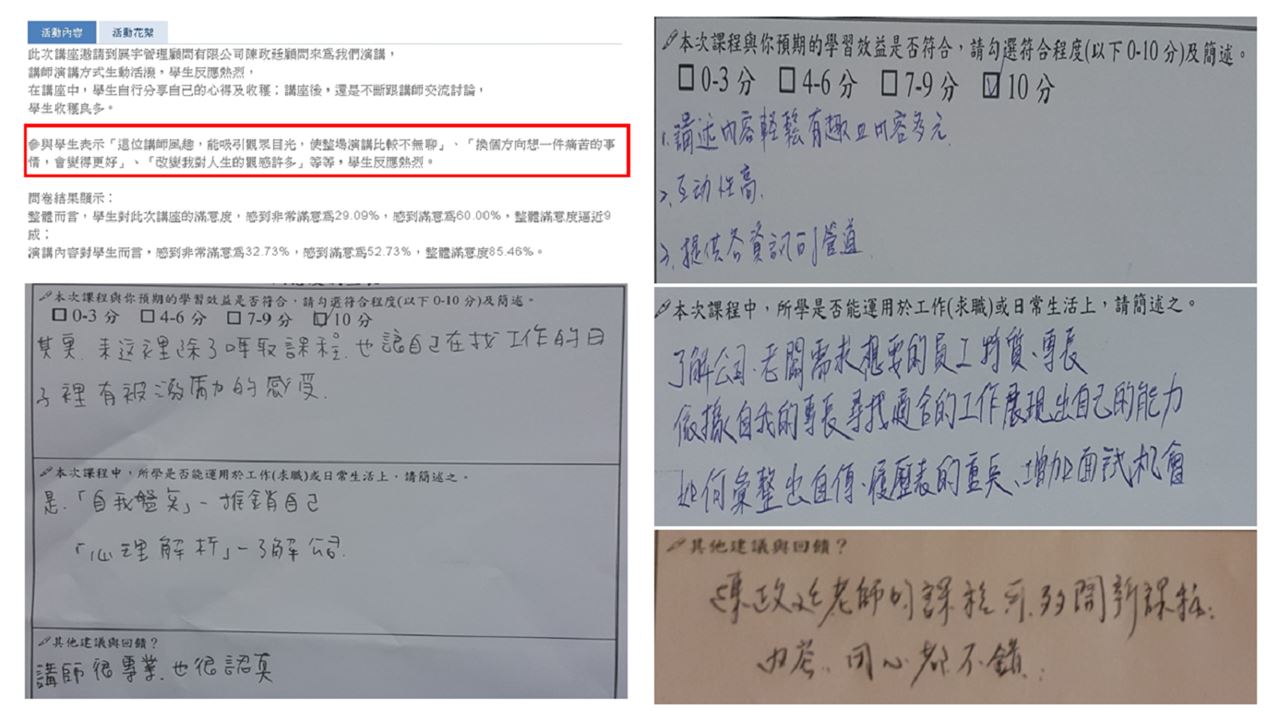 活動內容
活動花絮
此次講座邀請到展宇管理顧問有限公司陳政廷顧問來為我們演講，
講師演講方式生動活潑，學生反應熱烈，
在講座中，學生自行分享自己的心得及收穫；講座後，還是不斷跟講師交流討論，
學生收穫良多。
參與學生表示「這位講師風趣，能吸引觀眾目光，使整場演講比較不無聊」、「換個方向想一件痛苦的事
情，會變得更好」、「改變我對人生的觀感許多」等等，學生反應熱烈。
問卷結果顯示：
整體而言，學生對此次講座的滿意度，感到非常滿意為29.09%，感到滿意為60.00%，整體滿意度逼近9
成；
演講內容對學生而言，感到非常滿意為32.73%，感到滿意為52.73%，整體滿意度85.46%。
本次課程與你預期的學習效益是否符合，請勾選符合程度(以下0-10分)及簡述。
0-3 分 4-6 分 7-9 分 10 分
其實，來这裡除了听取課程，也讓自己在找工作的日
子裡有被激勵的感受.
本次課程中，所學是否能運用於工作(求職)或日常生活上，請簡述之。
是.「自我盤点」-推銷自己
「心理解析」-了解公司.
其他建議與回饋？
講師很專業，也很認真
本次課程與你預期的學習效益是否符合，請勾選符合程度(以下0-10分)及簡述。
0-3 分 4-6 分 7-9 分 10 分
1.講述內容輕鬆有趣且內容多元
2.互动性高.
3.提供各資訊可管道.
本次課程中，所學是否能運用於工作(求職)或日常生活上，請簡述之。
了解公司、老闆需求想要的員工特質、專長
依據自我的專長尋找適合的工作展現出自己的能力
如何彙整出自傳、履歷表的重点、增加面試机會
其他建議與回饋？
陳政廷老師的課程可多開新課程.
內容、用心都不錯.